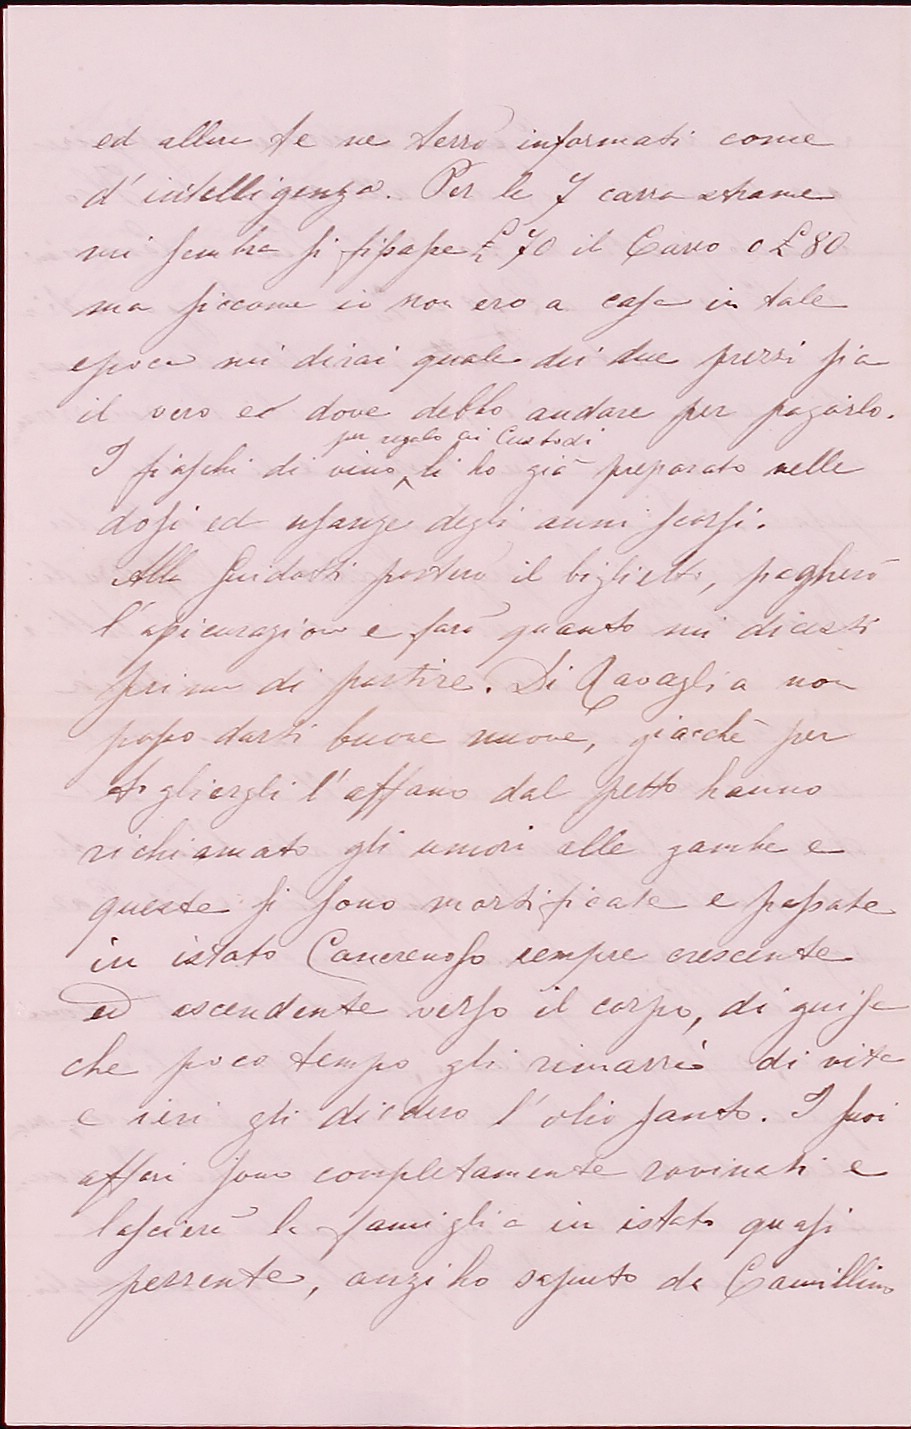 ed allora te ne terrò informati come
d'intelligenza. Per le 7 carra strame
mi sembra si fissasse £ 70 il Carro o £ 80
ma siccome io non ero a casa in tale
epoca mi dirai quale dei due prezzi sia
il vero ed dove debbo andare per pagarlo.
per regalo ai Custodi
I fiaschi di vino li ho già preparato nelle
dosi ed usanze degli anni scorsi.
Alla Guidotti porterò il biglietto, pagherò
l'assicurazione e farò quanto mi dicesti
prima di partire. Di Ravaglia non
posso darti buone nuove, giacchè per
togliergli l'affano dal petto hanno
richiamato gli umori alle gambe e
queste si sono mortificate e passate
in istato Cancrenoso sempre crescente
ed ascendente verso il corpo, di guisa
che poco tempo gli rimarrà di vita
e ieri gli diedero l'olio santo. I suoi
affari sono completamente rovinati e
lascierà la famiglia in istato quasi
pezzente, anzi ho saputo da Camillino